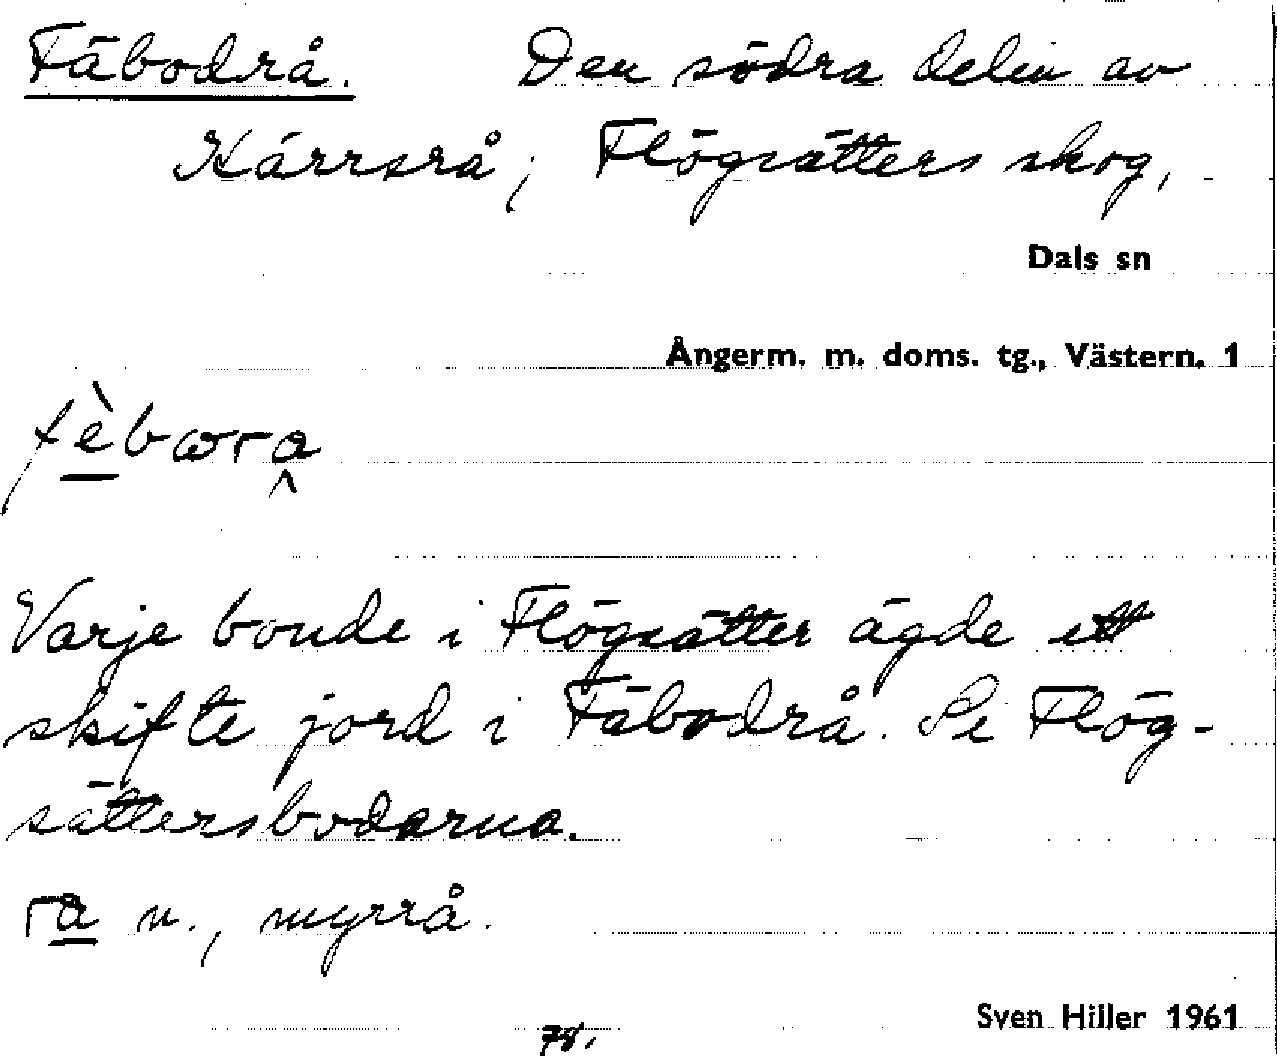 Fäbodrå. Den södra delen av
Kärrsrå; Flögsätters skog,
Dals sn
Ångerm. m. doms. tg., Västern. 1
fèbωra
Varje bonde i Flögsätter ägde ett
skifte jord i Fäbodrå. Se Flög-
sättersbodarna.
ra n., myrrå.
Sven Hiller 1961
78.